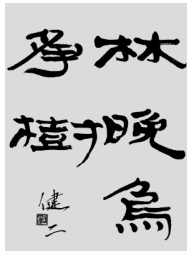 林晚鳥
爭樹
健二